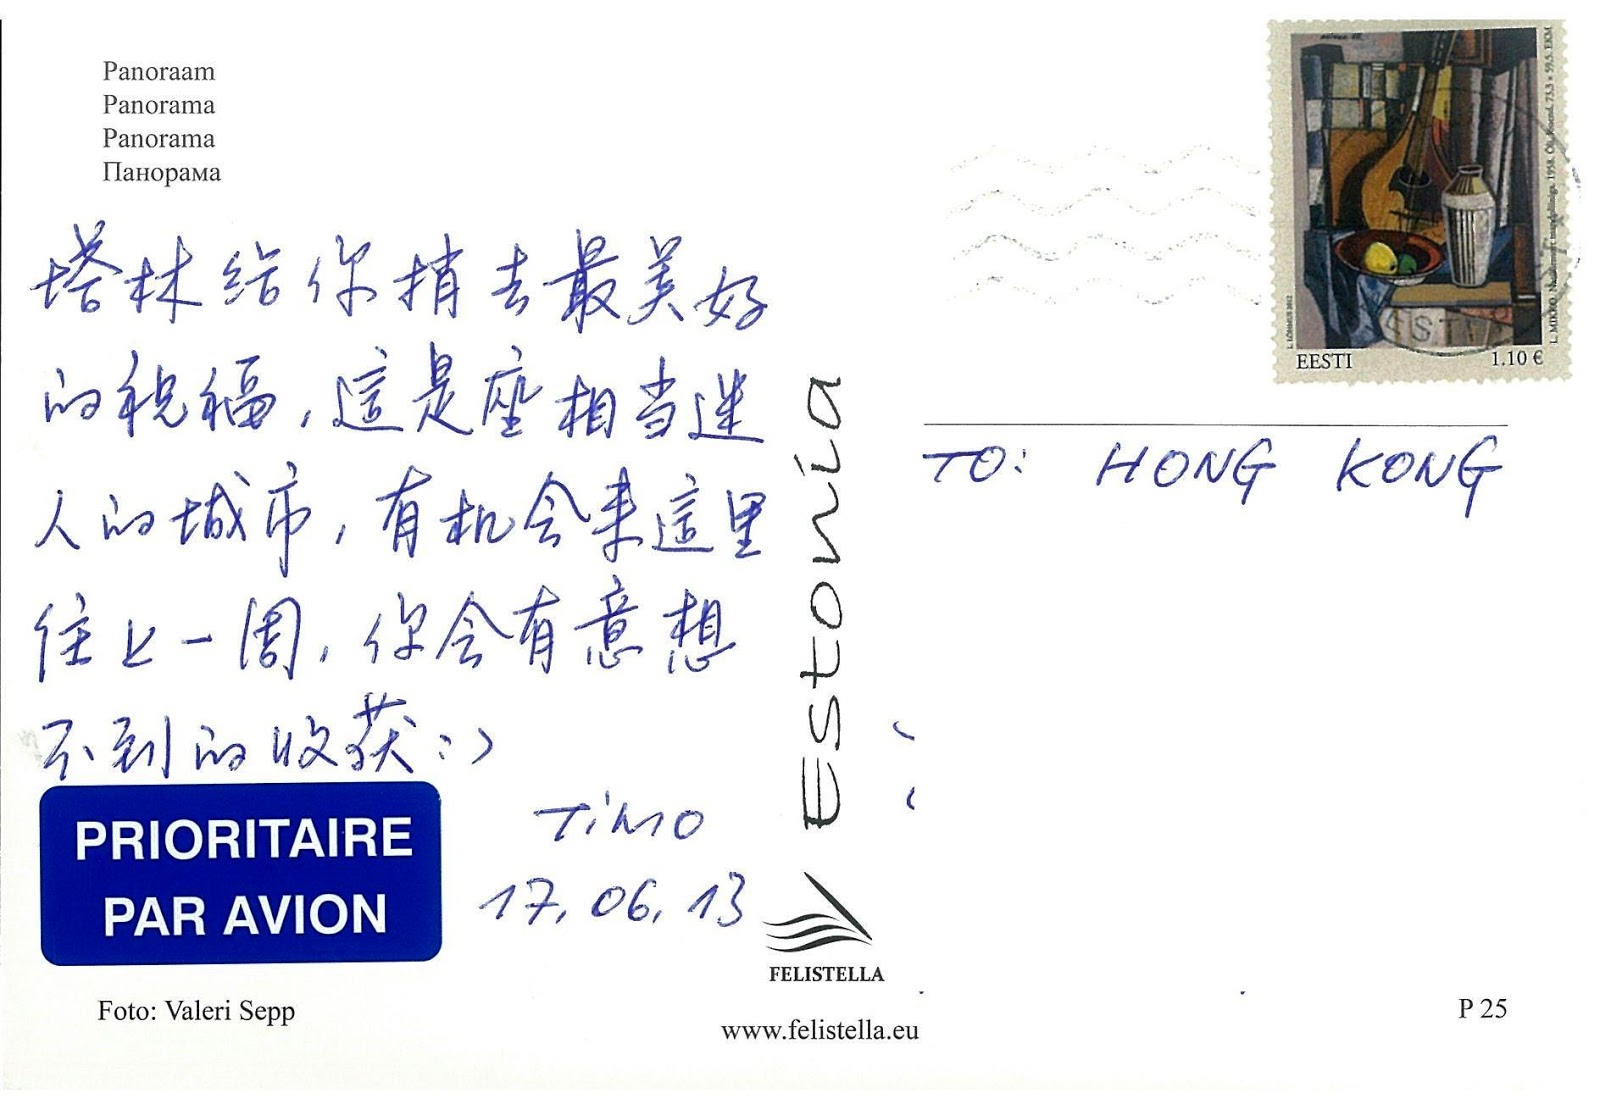 Panoraam
Panorama
Panorama
Панорама
塔林给你捎去最美好
的祝福,這是座相当迷
人的城市,有机会来這里
住上一周,你会有意想
不到的收获:)
TiMO
17.06.13
PRIORITAIRE
PAR AVION
Foto: Valeri Sepp
Estonia
FELISTELLA
www.felistella.eu
EESTI
1.10 €
TO: HONG KONG
P 25